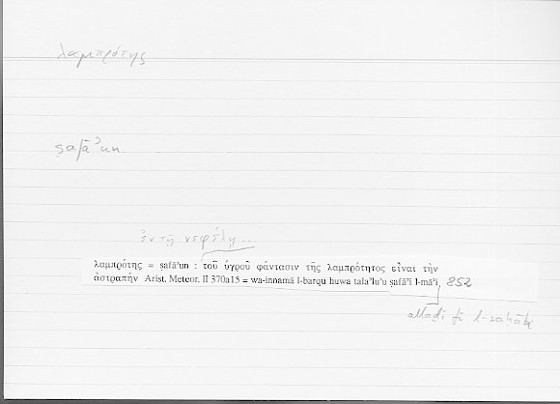 λαμπρότης
ṣafāʾun
ἐν τῇ νεφέλῃ...
λαμπρότης = ṣafāʾun : τοῦ ὑγροῦ φάντασιν τῆς λαμπρότητος εἶναι τὴν
ἀστραπήν Arist. Meteor. II 370a15 = wa-innamā l-barqu huwa talaʾluʾu ṣafāʾi l-māʾi, 852
allaḏī fī l-saḥābi